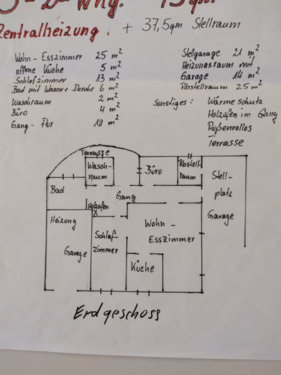 Zentralheizung + 37,5qm Stellraum
Wohn - Esszimmer 25 m²
offene Küche 5 m²
Schlafzimmer 13 m²
Bad mit Wanne Dusche 6 m²
Waschraum 2 m²
Büro 4 m²
Gang - Flur 18 m²
Stellgarage 21 m²
Heizungsraum mit
Garage 14 m²
Abstellraum 25 m²
Sonstiges: Wärmeschutz
Holzofen im Gang
Außenrollos
Terrasse
Terrasse
Waschraum
Büro
Abstellraum
Bad
Stellplatz
Garage
Heizung
Holzofen
Gang
Wohn -
Esszimmer
Schlafzimmer
Garage
Küche
Erdgeschoss